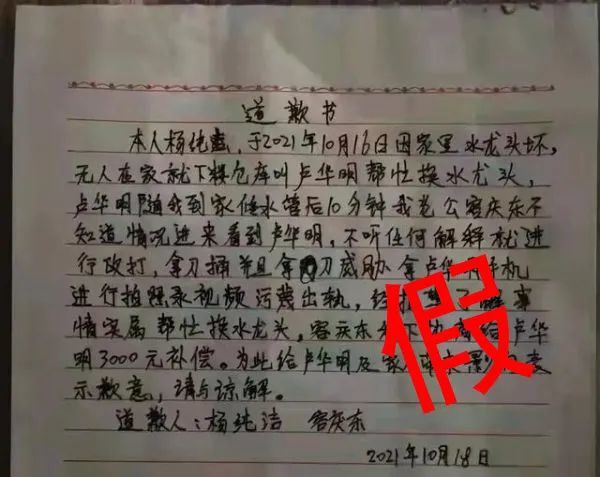 道歉书
本人杨纯洁,于2021年10月16日因家里水龙头坏,
无人在家就下料仓库叫卢华明帮忙换水龙头,
卢华明随我到家修水管后10分钟我老公容庆东不
知道情况进来看到卢华明,不听任何解释就进
行攻打,拿刀捅并且拿刀威胁拿卢华手机
进行拍照录视频污蔑出轨,经事
情实属帮忙换水龙头,容庆东给卢华
明3000元补偿。为此给卢华明及家表
示歉意,请与谅解。
道歉人:杨纯洁 容庆东
2021年10月18日
假